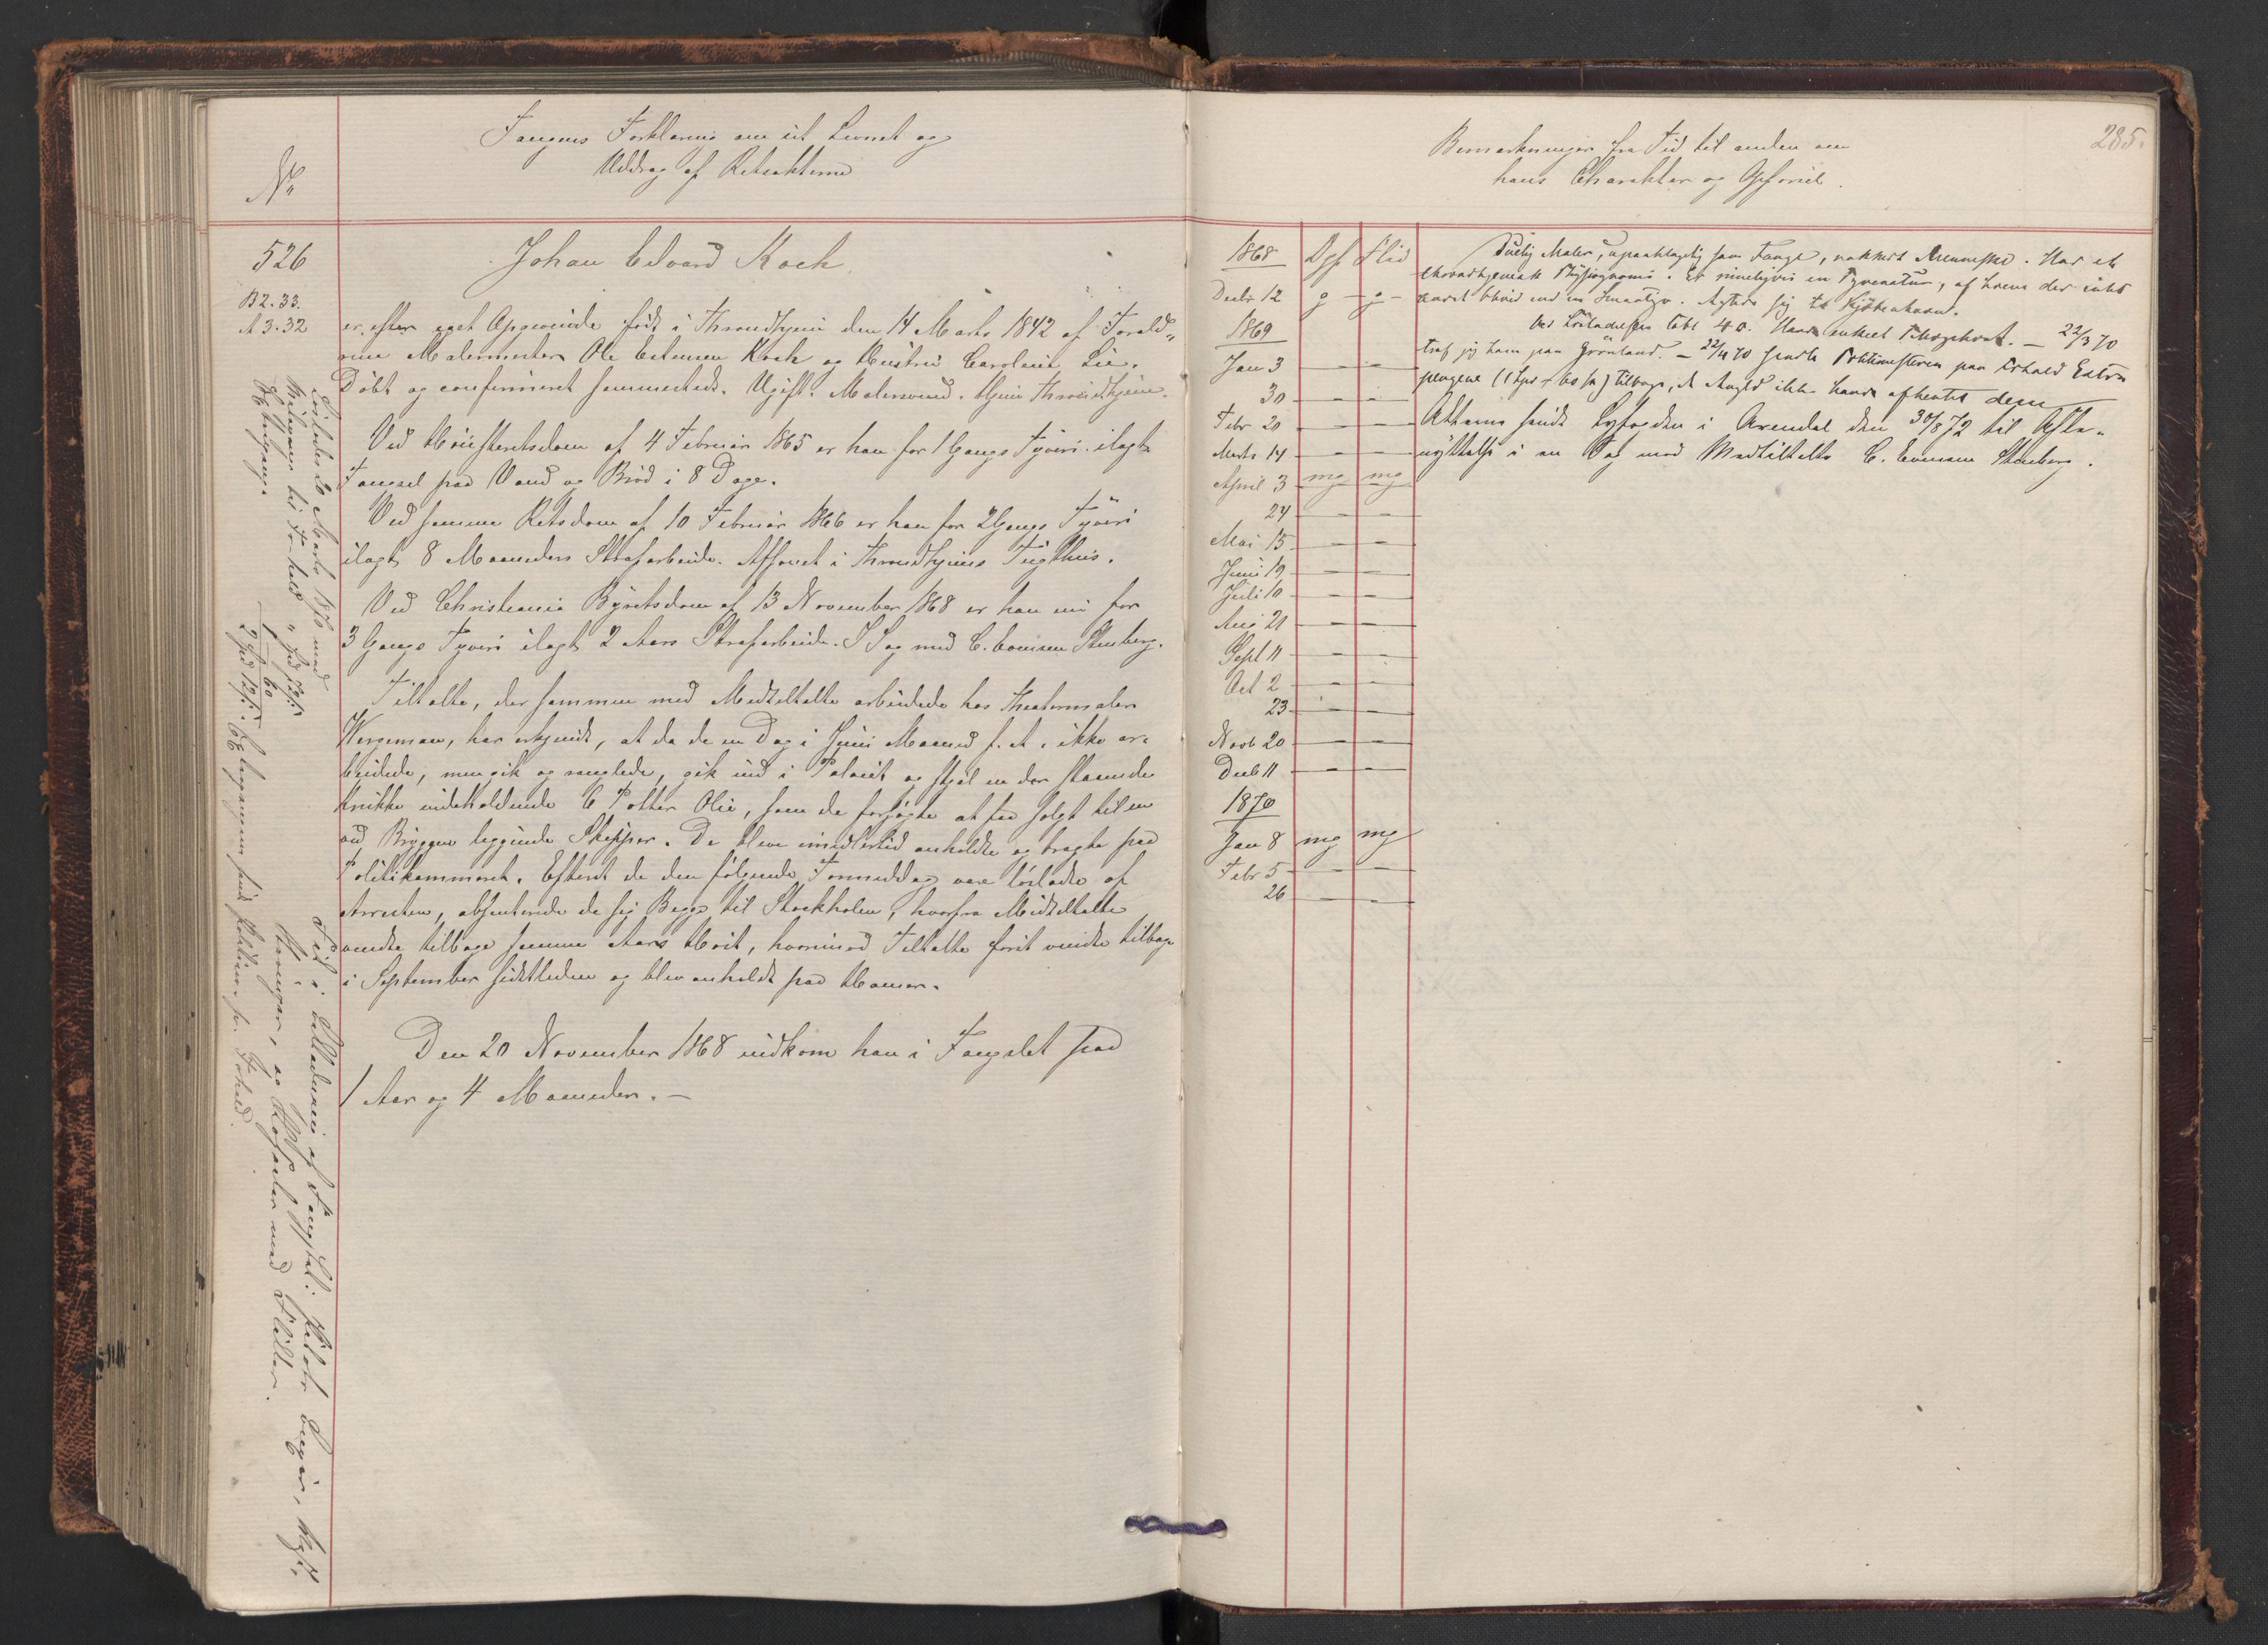 Fangens Forklaring om sit Levnet og
Uddrag af Retsakterne
No
526
B 2. 33.
A 3. 32
Johan Edvard Koch
er efter eget Opgivende født i Throndhjem den 14 Marts 1842 af Foræld-
rene Malermester Ole Estensen Koch og Hustru Caroline Lie.
Døbt og confirmeret sammesteds. Ugift. Malersvend. Hjem Throndhjem.
Ved Høiesteretsdom af 4 Februar 1865 er han for 1 Gangs Tyveri ilagt
Fængsel paa Vand og Brød i 8 Dage.
Ved samme Retsdom af 10 Februar 1866 er han for 2 Gangs Tyveri
ilagt 8 Maaneders Strafarbeide. Afsonet i Throndhjems Tugthus.
Ved Christiania Byretsdom af 13 November 1868 er han nu for
3 Gangs Tyveri ilagt 2 Aars Strafarbeide. I Sag med C. Evensen Stenberg.
Tiltalte, der sammen med Medtiltalte arbeidede hos Theatermaler
Wergmann, har erkjendt, at da de en Dag i Juni Maaned f. A. ikke ar-
beidede, men gik og ranglede, gik ind i Palæet og stjal en der staaende
Krukke indeholdende 6 Potter Olie, som de forsøgte at faa solgt til en
ved Bryggen liggende Skipper. De bleve imidlertid anholdte og bragte paa
Politikammeret. Efterat de den følgende Formiddag vare løsladte af
Arresten, absenterede de sig Begge til Stockholm, hvorfra Medtiltalte
vendte tilbage samme Aars Høst, hvorimod Tiltalte først vendte tilbage
i September sidstleden og blev anholdt paa Hamar.
Den 20 November 1868 indkom han i Fængslet paa
1 Aar og 4 Maaneder. —
Løslades 20 Marts 1870 med
Bidragene til Forhold
Extrapenge 1 - 60
2 Spd 12 s.
Flid i
af Fængslet:
med
Bemærkninger fra Tid til anden om
hans Charakter og Opførsel.
285.
1868 Opf. Flid
Decbr 12 g - g -
1869
Jan 3 — —
30 — —
Febr 20 — —
Marts 14 — —
April 3 mg mg
24 — —
Mai 15 — —
Juni 19 — —
Juli 10 — —
Aug 21 — —
Sept 11 — —
Oct 2 — —
23 — —
Novb 20 — —
Decb 11 — —
1870
Jan 8 mg mg
Febr 5 — —
26 — —
Duelig Maler, upaaklagelig som Fange, vakkert Menneske. Har et
Physiognomi. Er rimeligvis en Tyvenatur, af hvem der intet
andet bliver end en Smaatyv. Agtede sig til Kjøbenhavn.
Ved Løsladelsen Cobl 40. — 22/3 70
traf jeg ham paa Grønland. — 22/4 70 sendte Politimesteren paa Forhold Extra
pengene (1 Spd - 60 s) tilbage, da Angld ikke havde afhentet dem
Akterne sendt Byfogden i Arendal den 30/8 72 til Afbe-
nyttelse i en Sag mod Medtiltalte C. Evensen Stenberg.